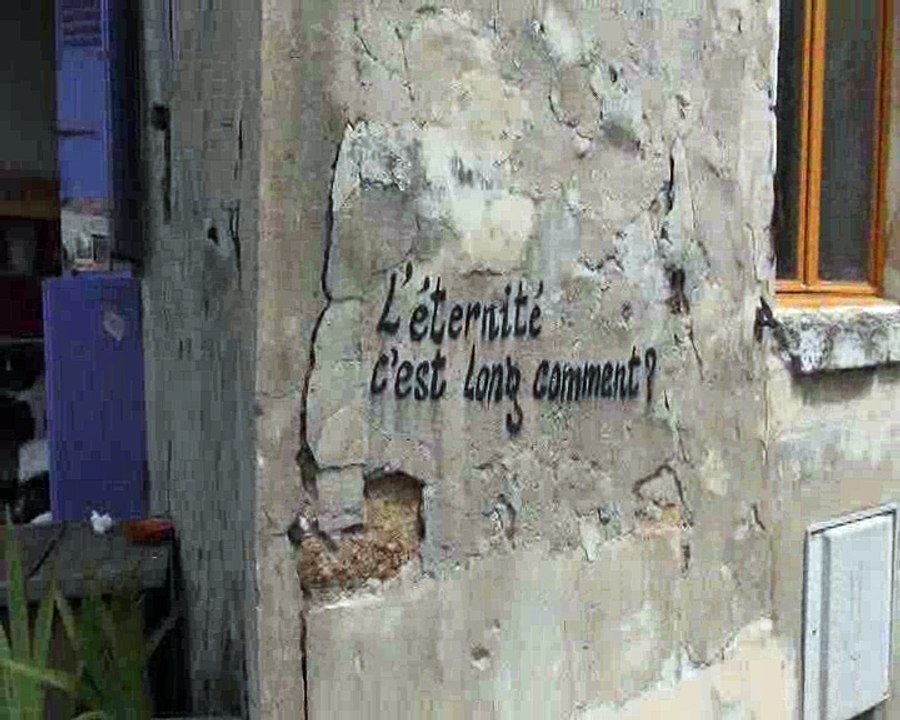 L'éternité
c'est long comment?